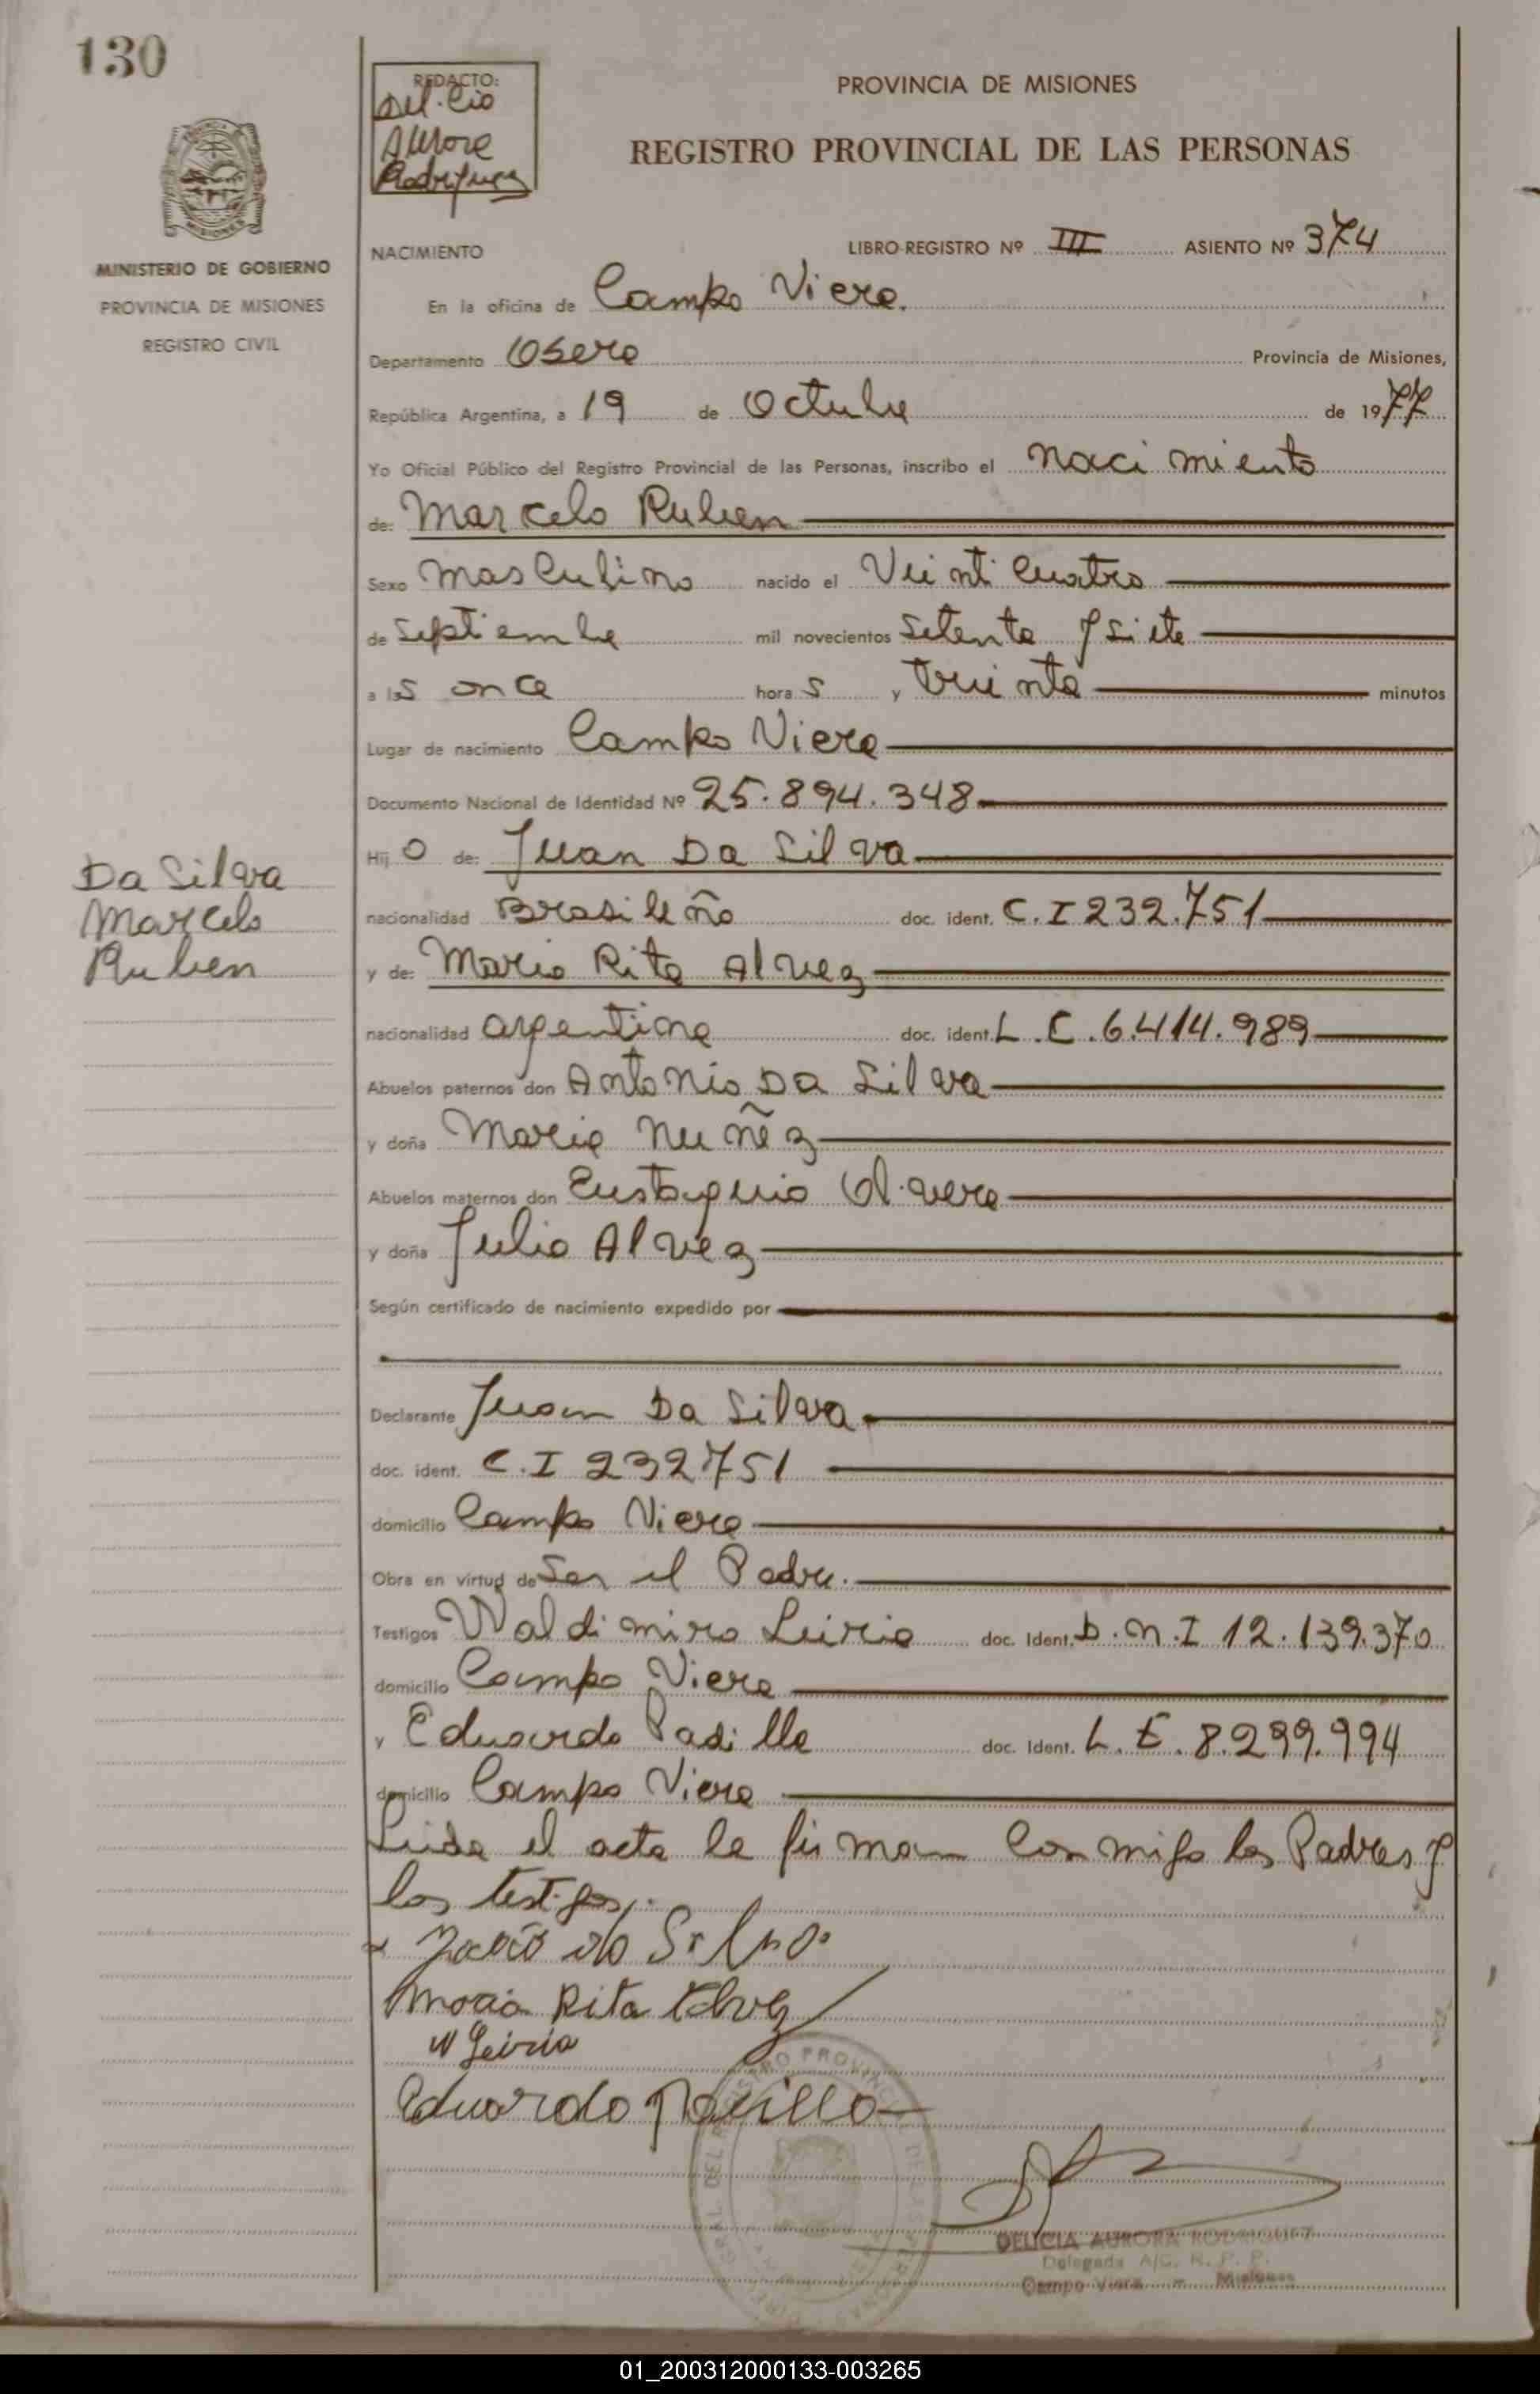 130
REDACTO:
Del. Cio
Aurora
Rodriguez
PROVINCIA DE MISIONES
REGISTRO PROVINCIAL DE LAS PERSONAS
MINISTERIO DE GOBIERNO
PROVINCIA DE MISIONES
REGISTRO CIVIL
NACIMIENTO
LIBRO-REGISTRO Nº III ASIENTO Nº 374
En la oficina de Campo Viera.
Departamento Obera Provincia de Misiones,
República Argentina, a 19 de Octubre de 1977
Yo Oficial Público del Registro Provincial de las Personas, inscribo el nacimiento
de: Marcelo Ruben
Sexo masculino nacido el Veinticuatro
de Septiembre mil novecientos setenta y siete
a las once horas y treinta minutos
Lugar de nacimiento Campo Viera
Documento Nacional de Identidad Nº 25.894.348
Hijo de: Juan Da Silva
Da Silva
Marcelo
Ruben
nacionalidad Brasileño doc. ident. C.I 232.751
y de: Maria Rita Alvez
nacionalidad argentina doc. ident. L.C. 6.414.989
Abuelos paternos don Antonio Da Silva
y doña Maria Nuñez
Abuelos maternos don Eustaquio Olivera
y doña Julia Alvez
Según certificado de nacimiento expedido por
Declarante Juan Da Silva
doc. ident. C.I 232751
domicilio Campo Viera
Obra en virtud de Ser el Padre.
Testigos Waldimiro Leiria doc. Ident. D.N.I 12.139.370
domicilio Campo Viera
y Eduardo Padilla doc. Ident. L.E. 8.299.994
domicilio Campo Viera
Leida el acta la firman conmigo los Padres y
los testigos.
Maria Rita Alvez
W Leiria
Eduardo Padilla
DELICIA AURORA RODRIGUEZ
Delegada A/C. R. P. P.
Campo Viera - Misiones
01_200312000133-003265